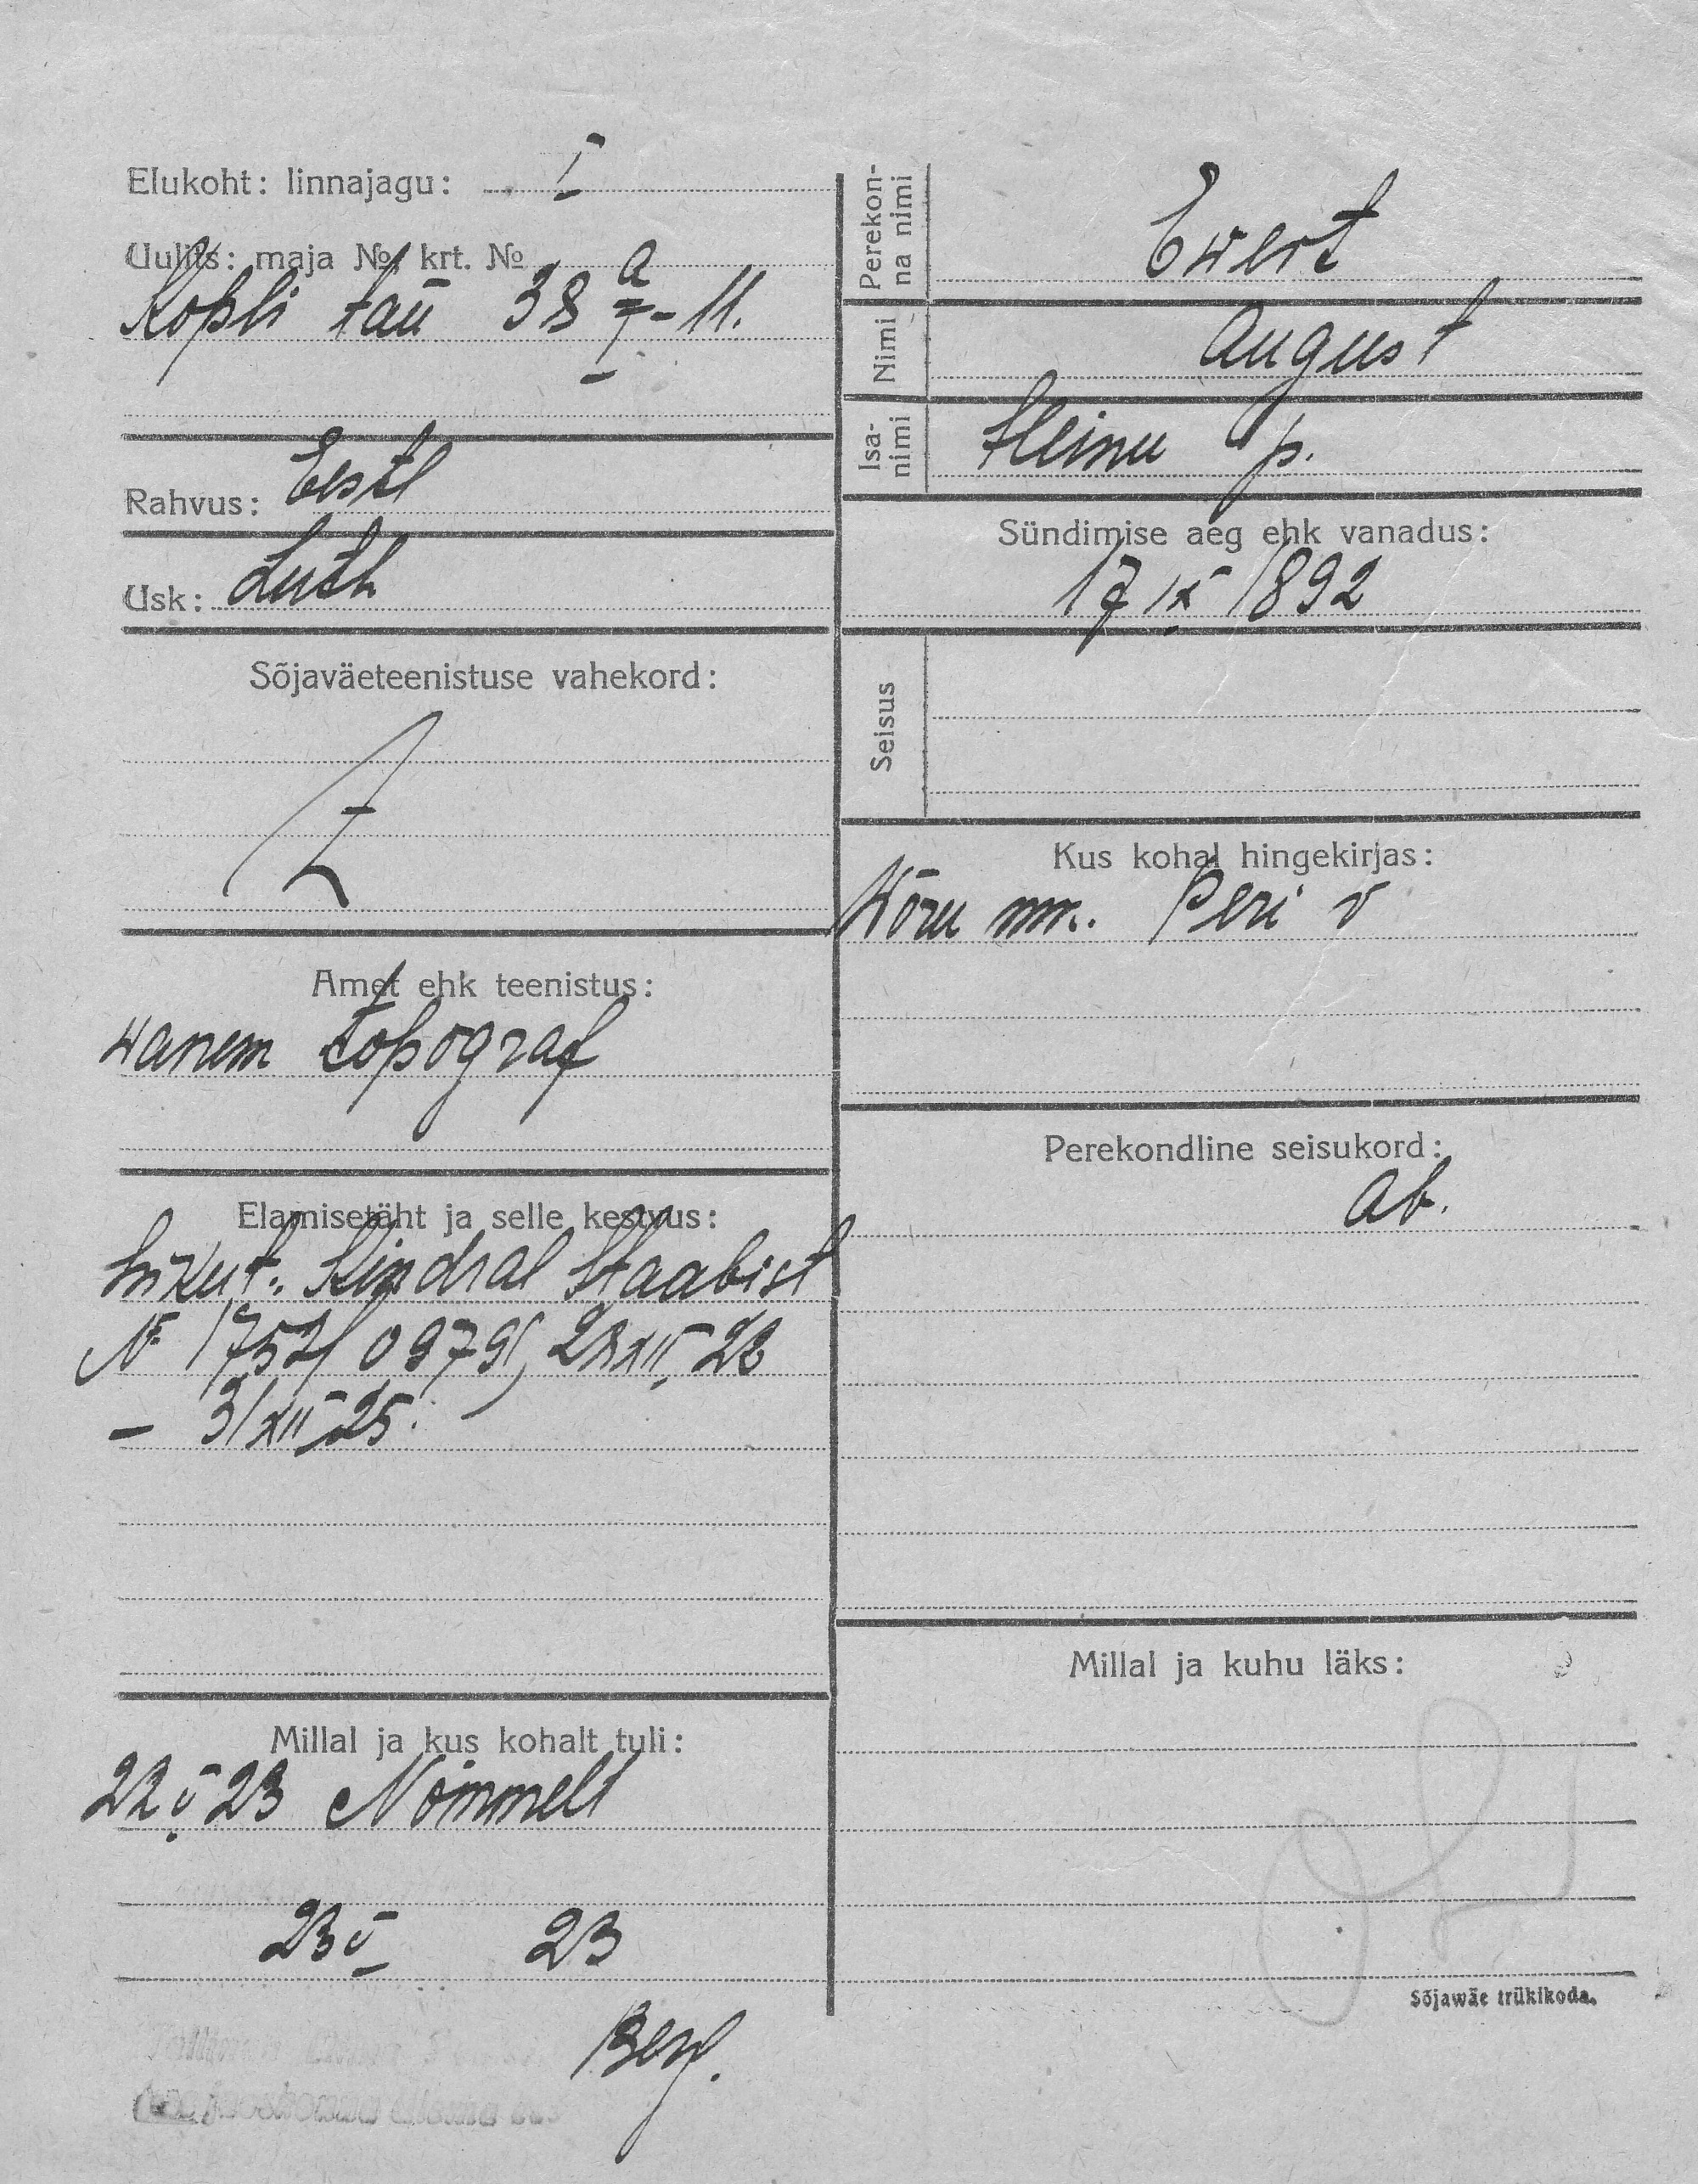 Elukoht: linnajagu: I
Uulits: maja № krt. № a
Kopli tän 38 I - 11.
Rahvus: Eestl
Usk: Luth
Sõjaväeteenistuse vahekord:
Amet ehk teenistus:
wanem topograf
Elamisetäht ja selle kestvus:
Kindral Staabist
№ 1752/ 09791, 23 XII 23
– 31 XII 25.
Millal ja kus kohalt tuli:
22 V 23 Nõmmelt
23 V 23
Berg.
Perekonna nimi
Ewert
Nimi
August
Isanimi
Heinu p.
Sündimise aeg ehk vanadus:
17 IX 1892
Seisus
Kus kohal hingekirjas:
Wõru mk. Peri v
Perekondline seisukord:
ab.
Millal ja kuhu läks:
Sõjawäe trükikoda.